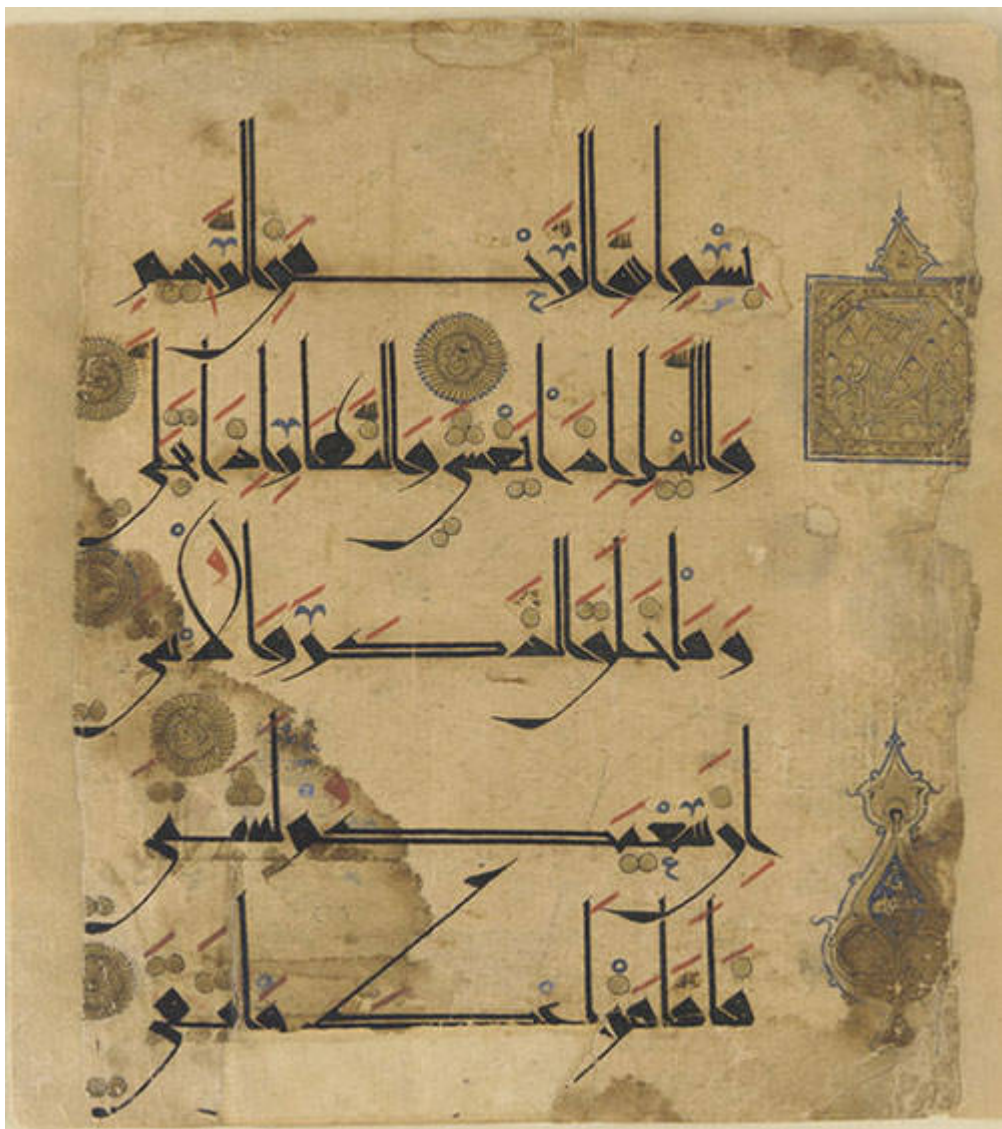 بِسْمِ اللَّهِ الرَّحْمَنِ الرَّحِيمِ
وَاللَّيْلِ إِذَا يَغْشَى وَالنَّهَارِ إِذَا تَجَلَّى
وَمَا خَلَقَ الذَّكَرَ وَالْأُنْثَى
إِنَّ سَعْيَكُمْ لَشَتَّى
فَأَمَّا مَنْ أَعْطَى وَاتَّقَى